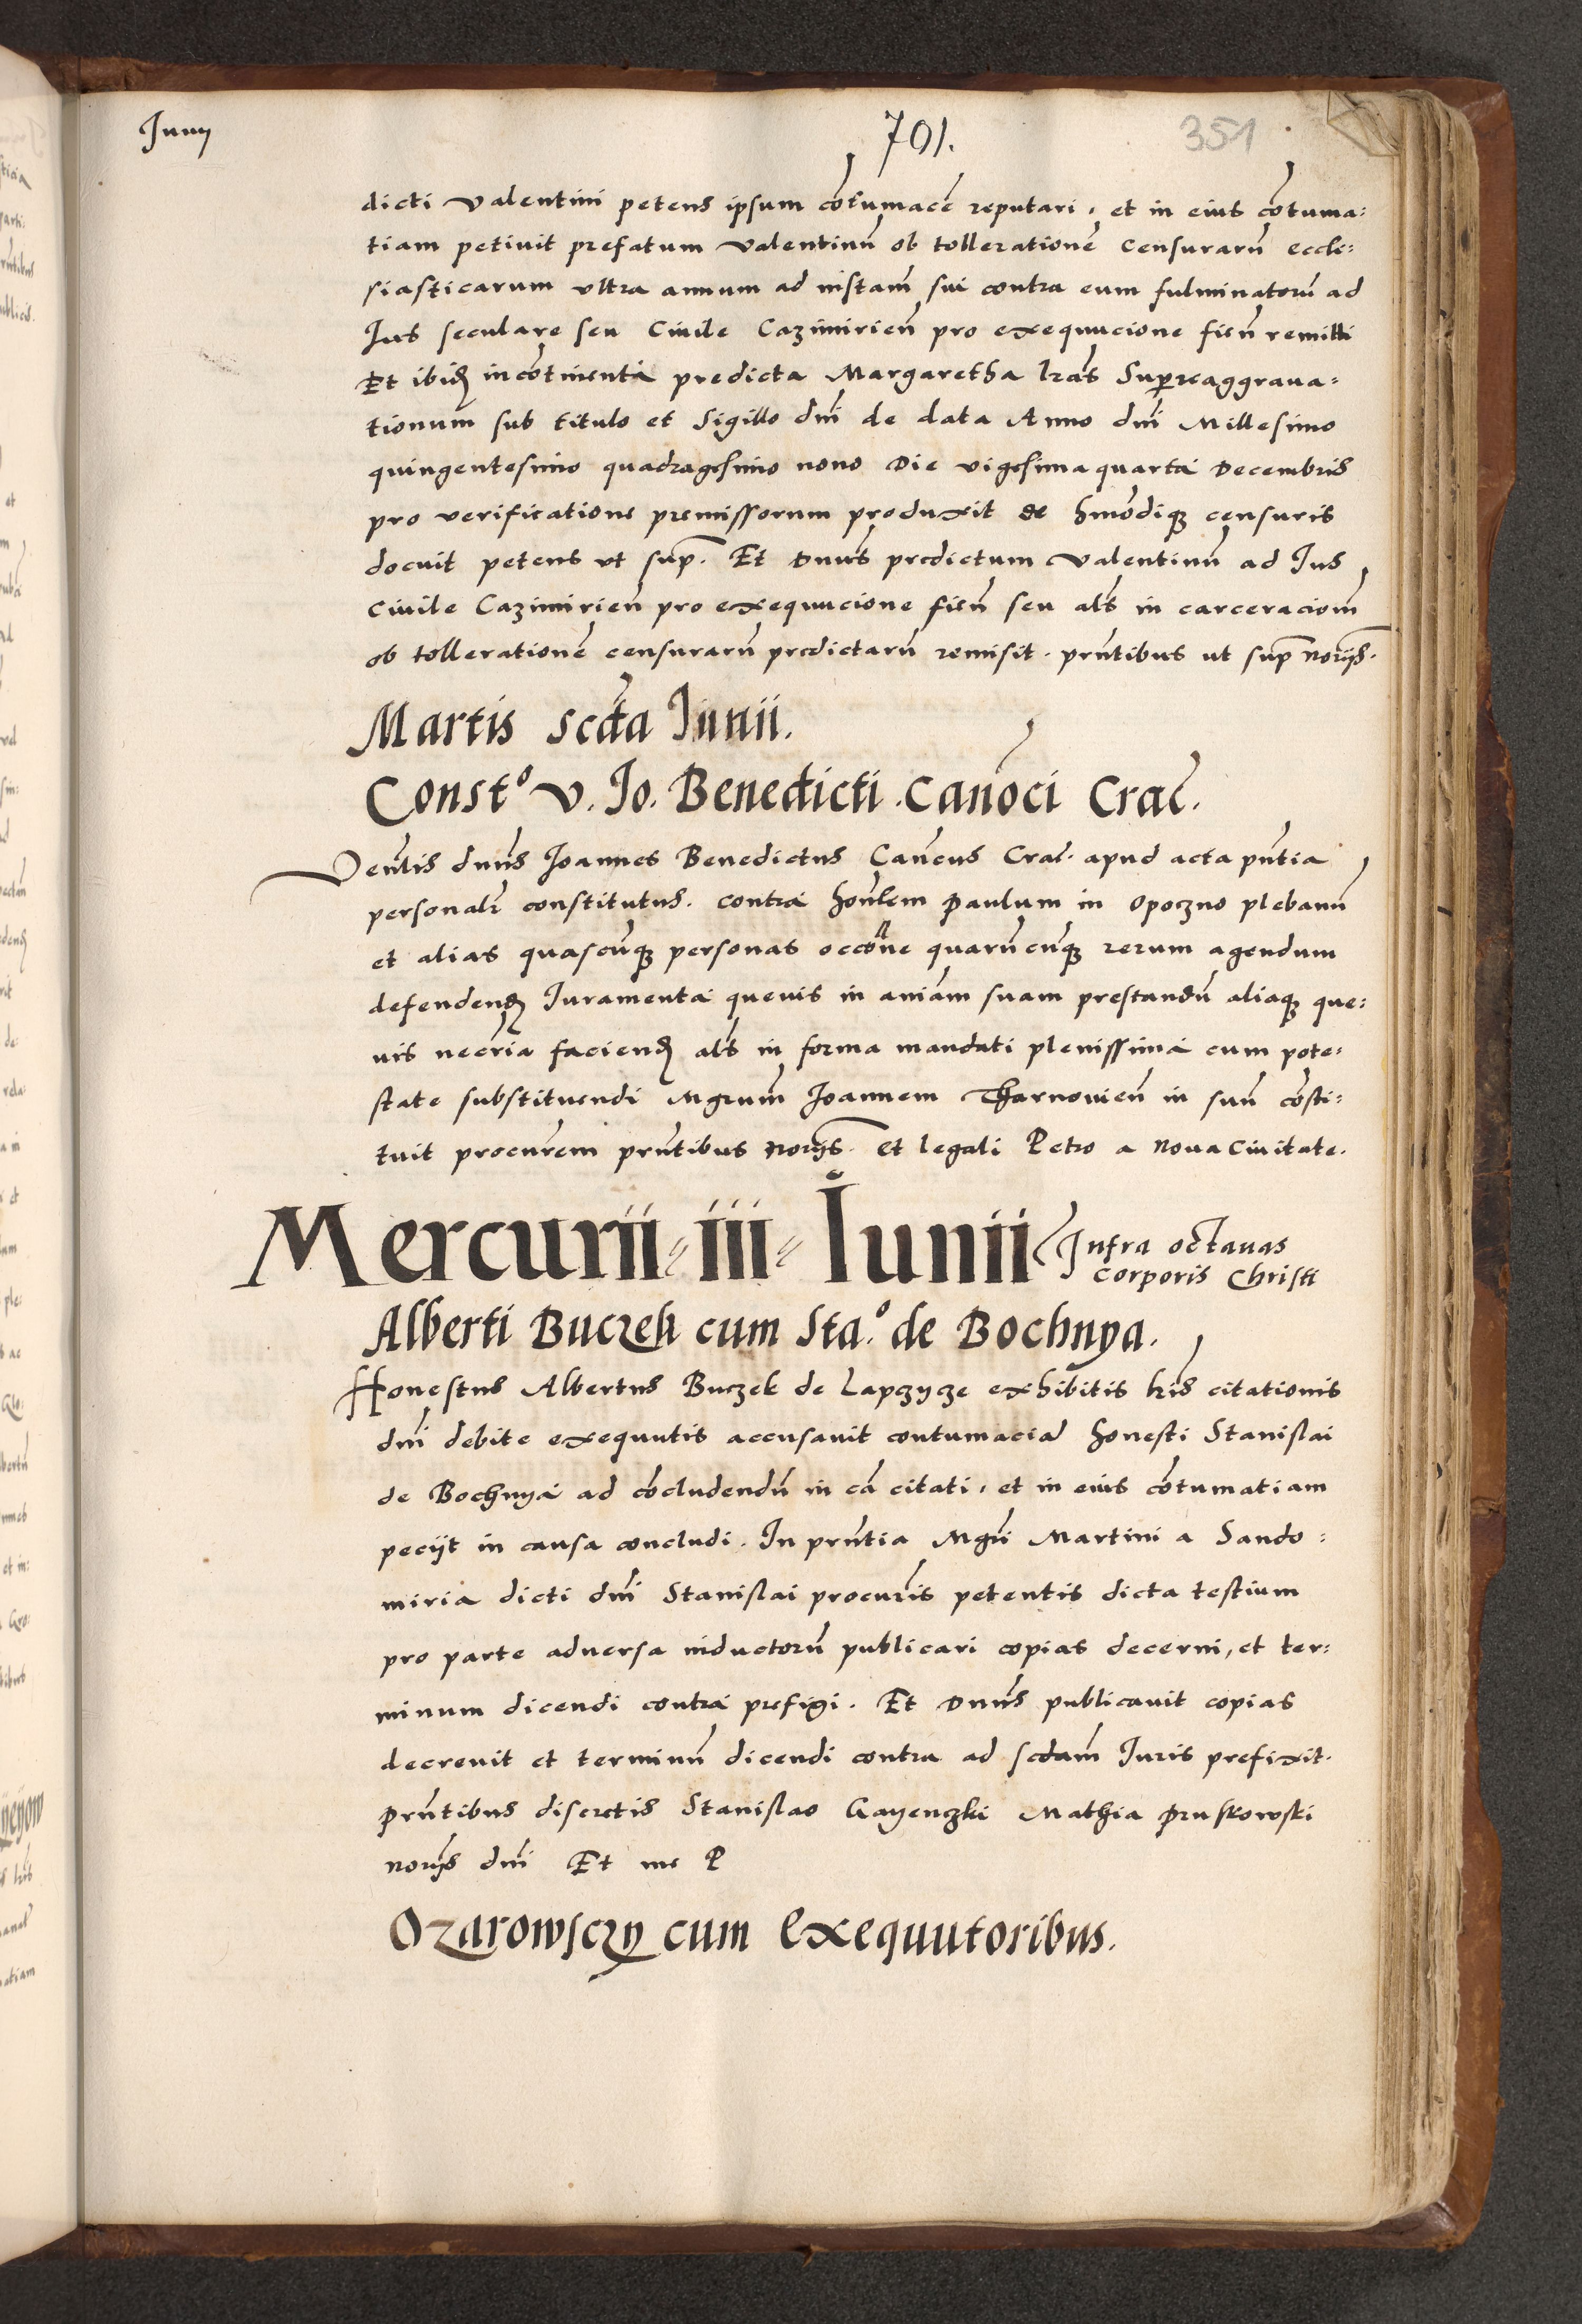 Junij
701.
351
dicti Valentini petens ipsum cõtumacẽ reputari, et in eius cõtuma:
tiam petiuit prefatum Valentinũ ob tollerationẽ censurarũ eccle:
siasticarum vltra annum ad instam̃ sui contra eum fulminatorũ ad
Jus seculare seu Ciuile Cazimirieñ pro exequucione fieñ remitti
Et ibid incõtinenti predicta Margaretha lrãs Superaggraua:
tionum sub titulo et Sigillo dñi de data Anno dñi Millesimo
quingentesimo quadragesimo nono Die vigesima quarta Decembris
pro verificatione premissorum produxit de hmõdique censuris
docuit petens vt sup. Et Dnũs predictum Valentinũ ad Jus
Ciuile Cazimirieñ pro exequucione fieñ seu als in carceracionẽ
ob tollerationẽ censurarũ predictarũ remisit. prñtibus ut sup Norijs.
Martis scda Junii.
Constº v. Jo. Benedicti Canõci Crac.
Venlis dnũs Joannes Benedictus Cañcus Crac. apud acta pñtia
personalr constitutus. contra honlem Paulum in Opoczno plebanũ
et alias quascũque personas occõne quarũcũque rerum agendum
defendend Juramenta queuis in aniãm suam prestandũ aliaque que:
uis necria faciend als in forma mandati plenissima cum pote:
state substituendi Mgrum Joannem Tharnouieñ in suũ cõsti:
tuit procurem prñtibus Norijs. et legali Petro a Noua Ciuitate.
Mercurii iii Iunii Infra octauas
Corporis Christi
Alberti Buczek cum Sta.º de Bochnya.
Honestus Albertus Buczek de Lapczycze exhibitis lris citationis
dñi debite exequutis accusauit contumaciã honesti Stanislai
de Bochnya ad cõcludendũ in cã citati, et in eius cõtumatiam
pecijt in causa concludi. In prñtia Mgri Martini a Sando:
miria dicti dñi Stanislai procuris petentis dicta testium
pro parte aduersa inductorũ publicari copias decerni, et ter:
minum dicendi contra prefigi. Et Dnũs publicauit copias
decreuit et terminũ dicendi contra ad scdam Juris prefixit.
Prñtibus discretis Stanislao Gayenczki Mathia Pruskowski
norijs dñi Et me P
Ozarowsczy cum exequutoribus.